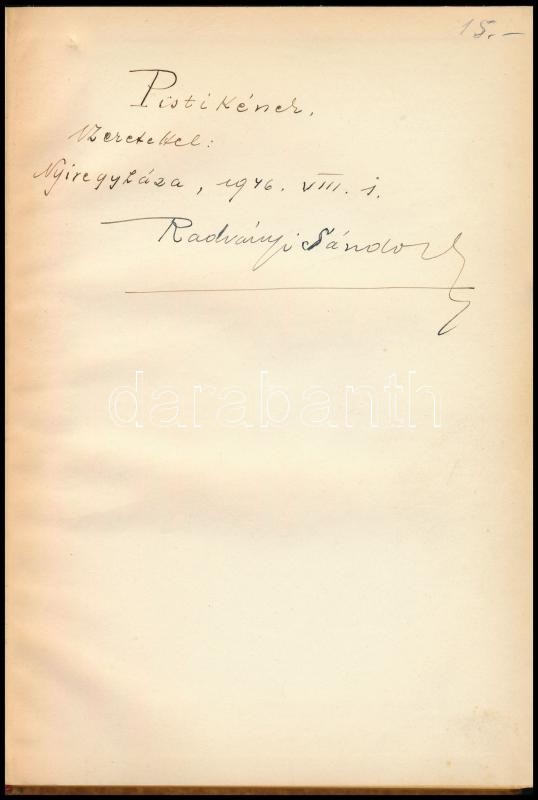 15.-
Pistikének.
Szeretettel:
Nyiregyháza, 1946. VIII. 1.
Radványi Sándor
darabanth